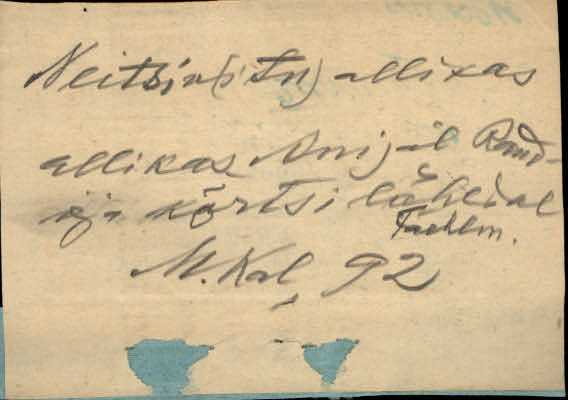 Neitsin(itn) allikas
allikas Anijal Raud-
oja kõrtsi lähedal
Faehlm.
M. Kal, 92